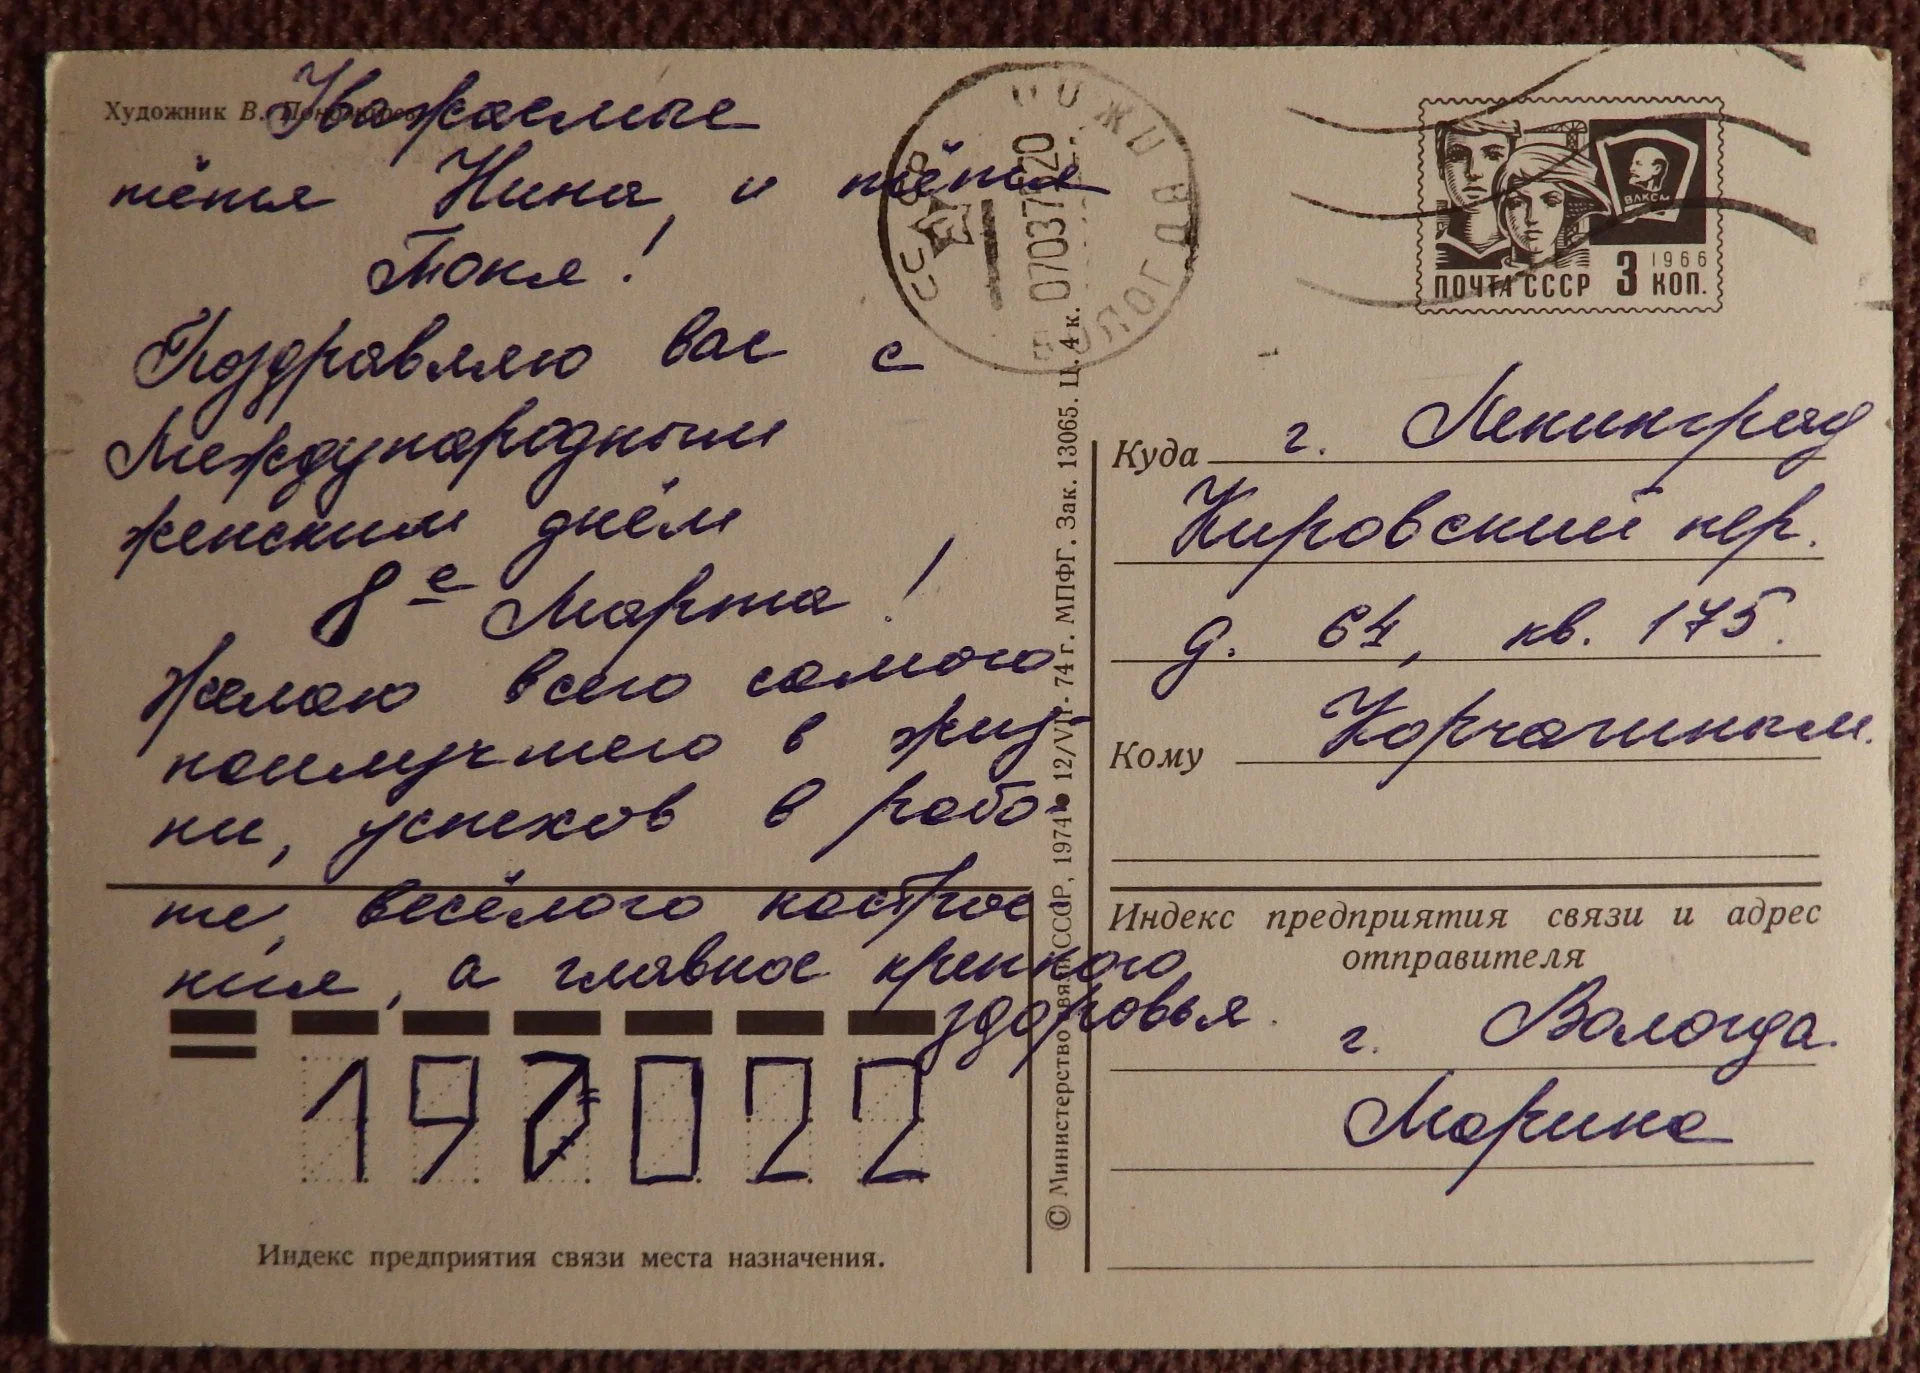 Художник В.
Уважаемые
тётя Нина, и тётя
Тоня!
Поздравляю вас с
Международным
женским днём
8 е Марта!
Желаю всего самого
наилучшего в жиз-
ни, успехов в рабо-
те, весёлого настрое
ния, а главное крепкого
здоровья.
19 022
Индекс предприятия связи места назначения.
СССР
070375 20
© Министерство связи СССР, 1974 ● 12/VII - 74 г. МПФГ. Зак. 13065. Ц. 4 к.
ВЛКСМ
1966
ПОЧТА СССР 3 КОП.
Куда г. Ленинград
Кировский пер.
д. 64, кв. 175.
Кому Корчагиным.
Индекс предприятия связи и адрес
отправителя
г. Вологда.
Марина